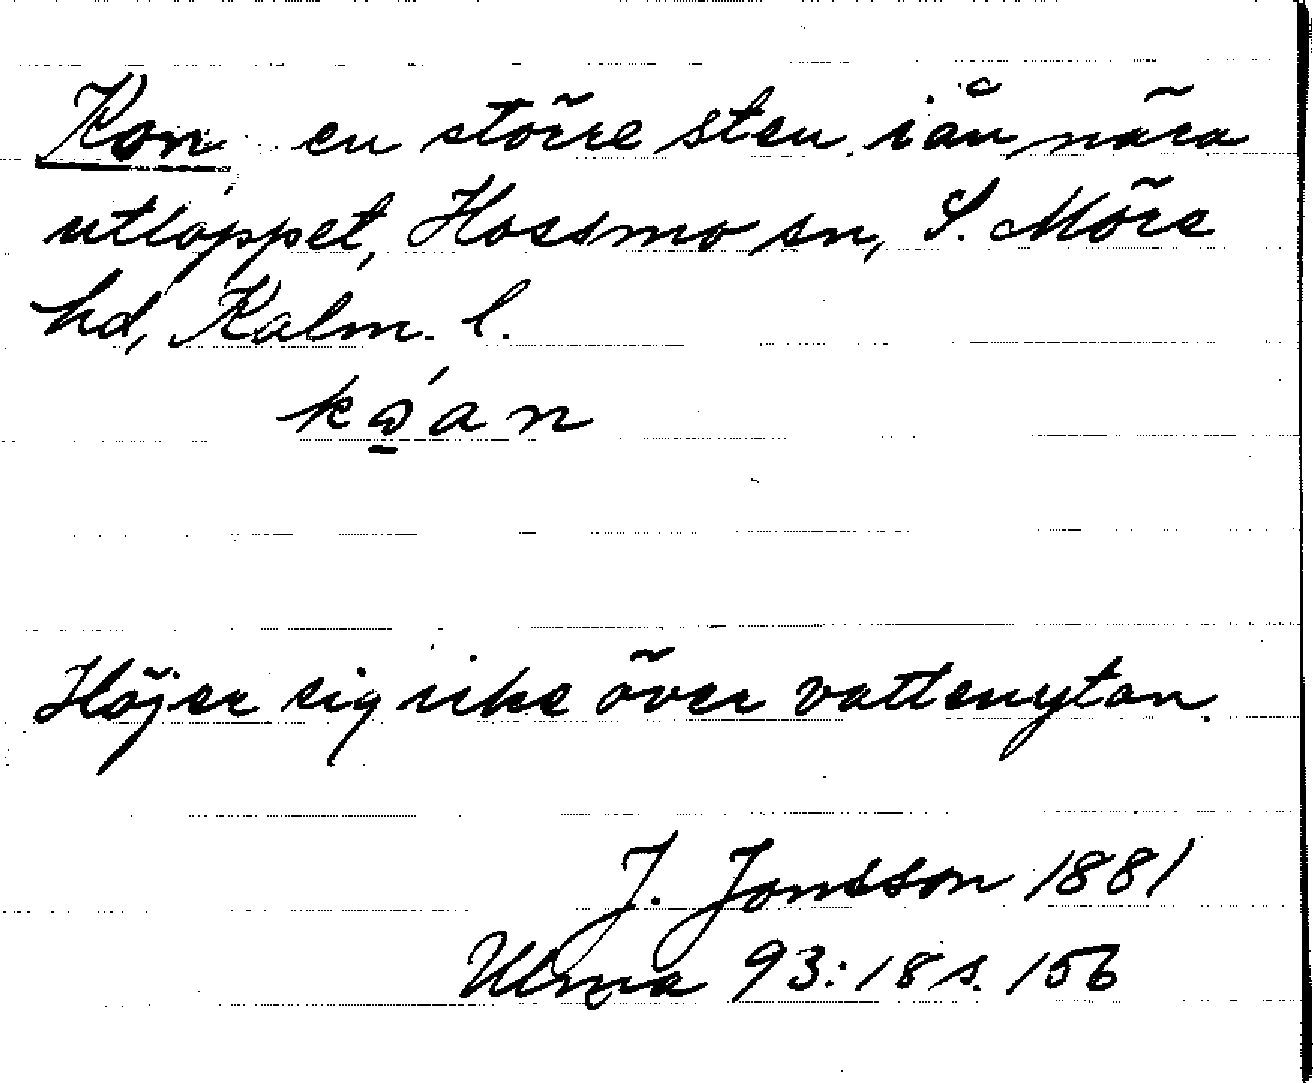 Kon en större sten i ån nära
utloppet, Hossmo sn, S. Möre
hd, Kalm. l.
Höjer sig icke över vattenytan.
J. Jonsson 1881
Ulma 93:18 s. 156